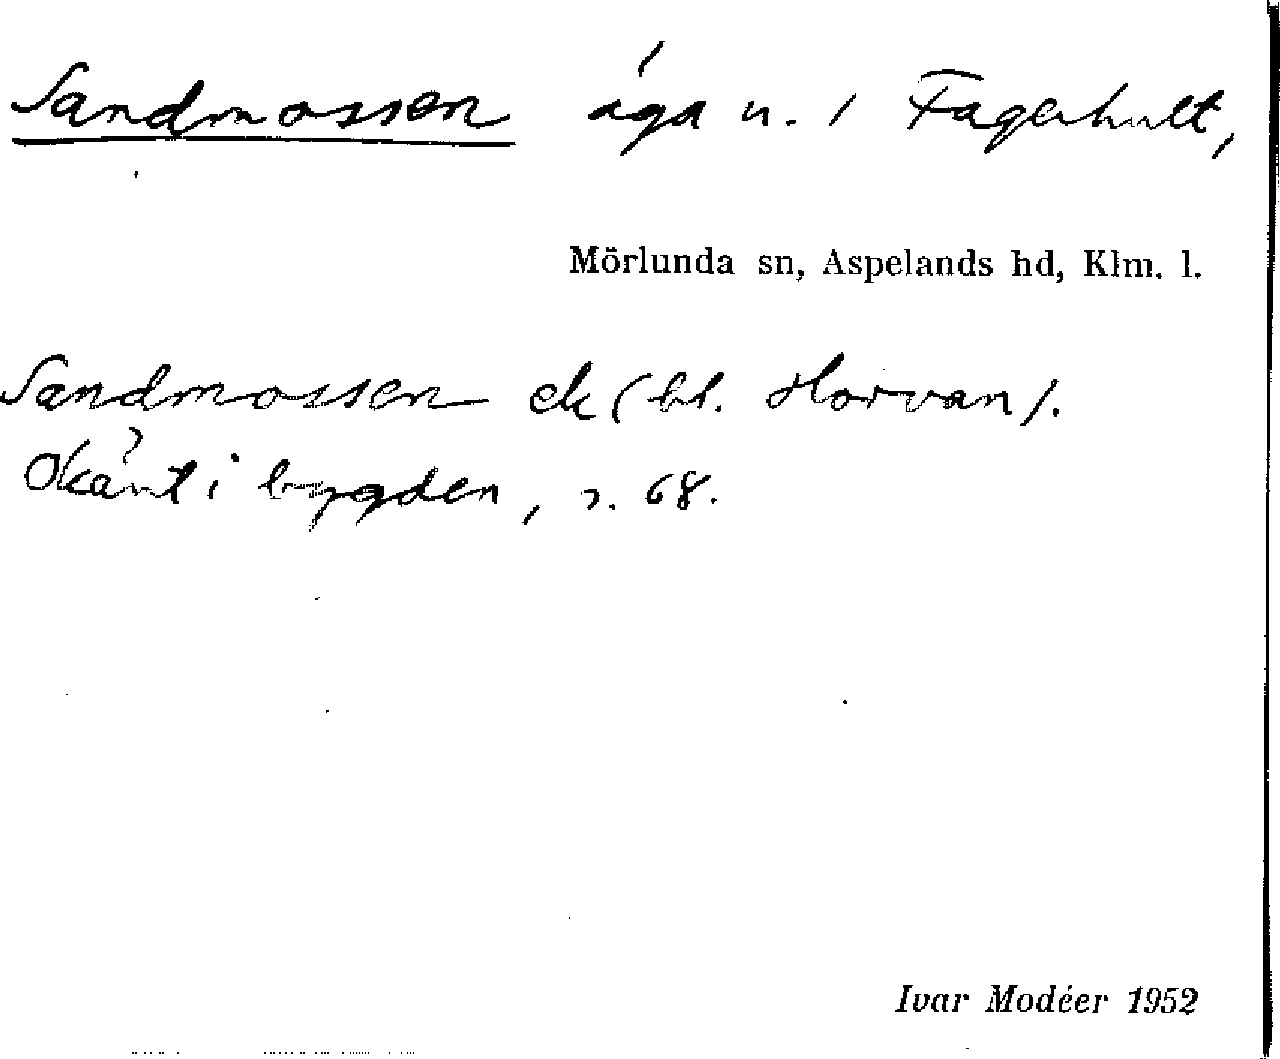 Sandmossen äga u. / Fagerhult,
Mörlunda sn, Aspelands hd, Klm. l.
Sandmossen ek (bl. Horvan).
Okänt i bygden, s. 68.
Ivar Modéer 1952